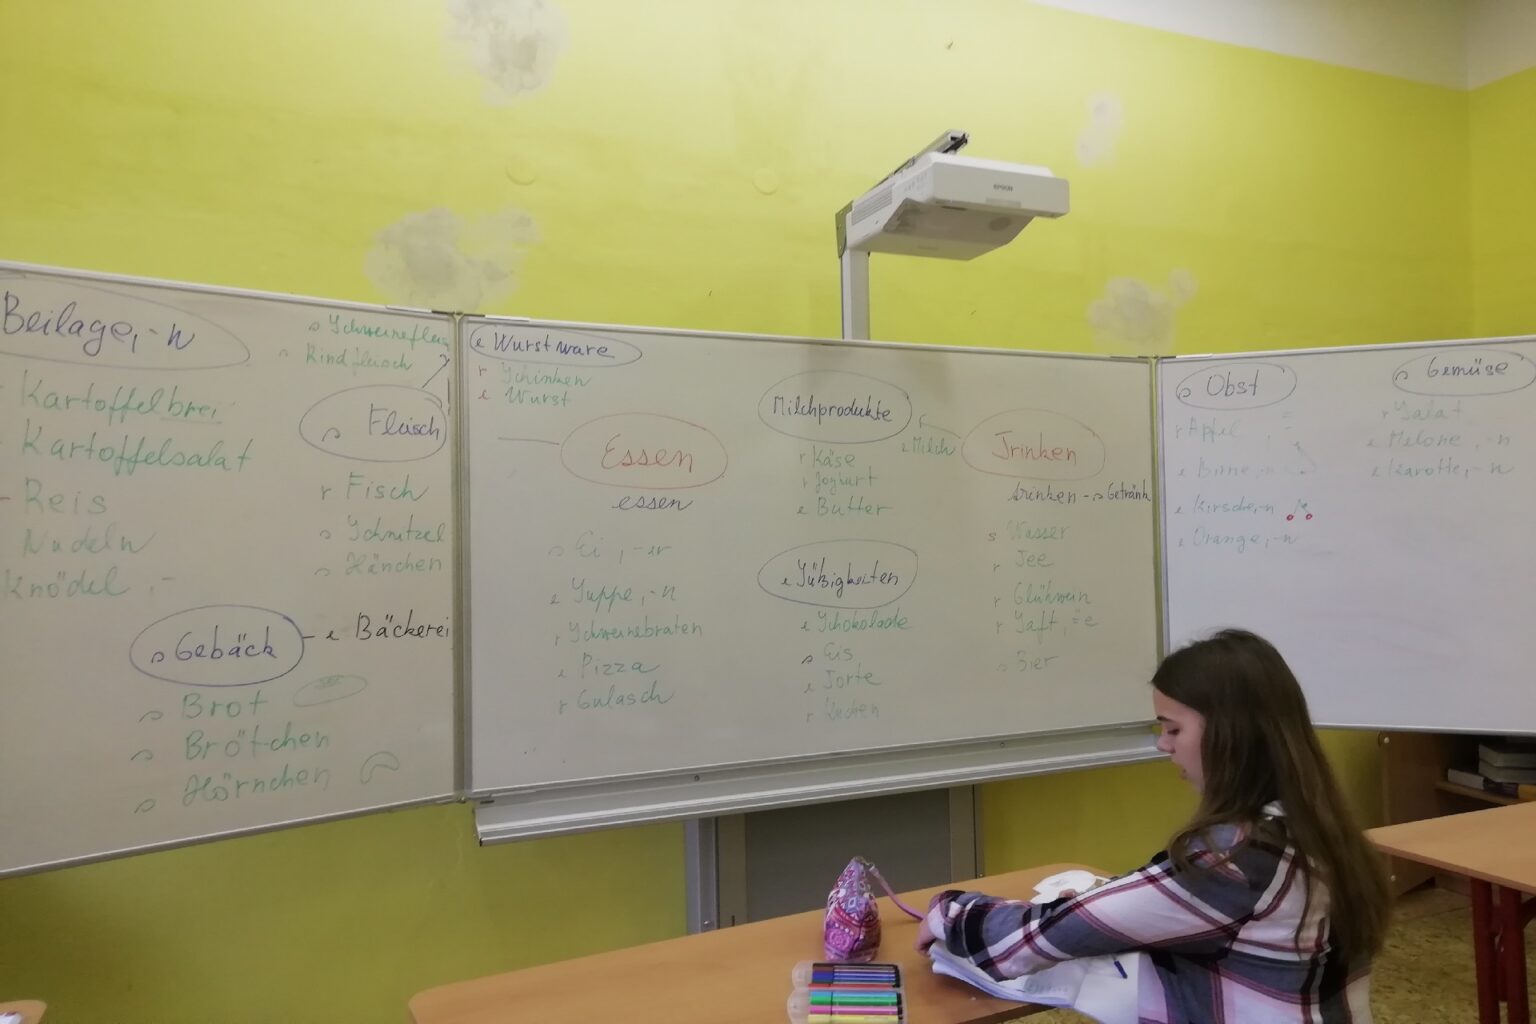 Beilage, -n
Kartoffelbrei
Kartoffelsalat
- Reis
Nudeln
Knödel, -
s Schweineflei
s Rindfleisch
s Fleisch
r Fisch
s Schnitzel
s Hänchen
s Gebäck - e Bäckerei
s Brot
s Brötchen
s Hörnchen
e Wurstware
r Schinken
e Wurst
Essen
essen
s Ei, -er
e Suppe, -n
r Schweinebraten
e Pizza
r Gulasch
Milchprodukte
r Käse
r Joghurt
e Butter
e Milch
e Süßigkeiten
e Schokolade
s Eis
e Torte
r Kuchen
Trinken
trinken - s Getränk
s Wasser
r Tee
r Glühwein
r Saft, ¨e
s Bier
s Obst
r Apfel, ¨
e Birne, -n
e Kirsche, -n
e Orange, -n
s Gemüse
r Salat
e Melone, -n
e Karotte, -n
EPSON